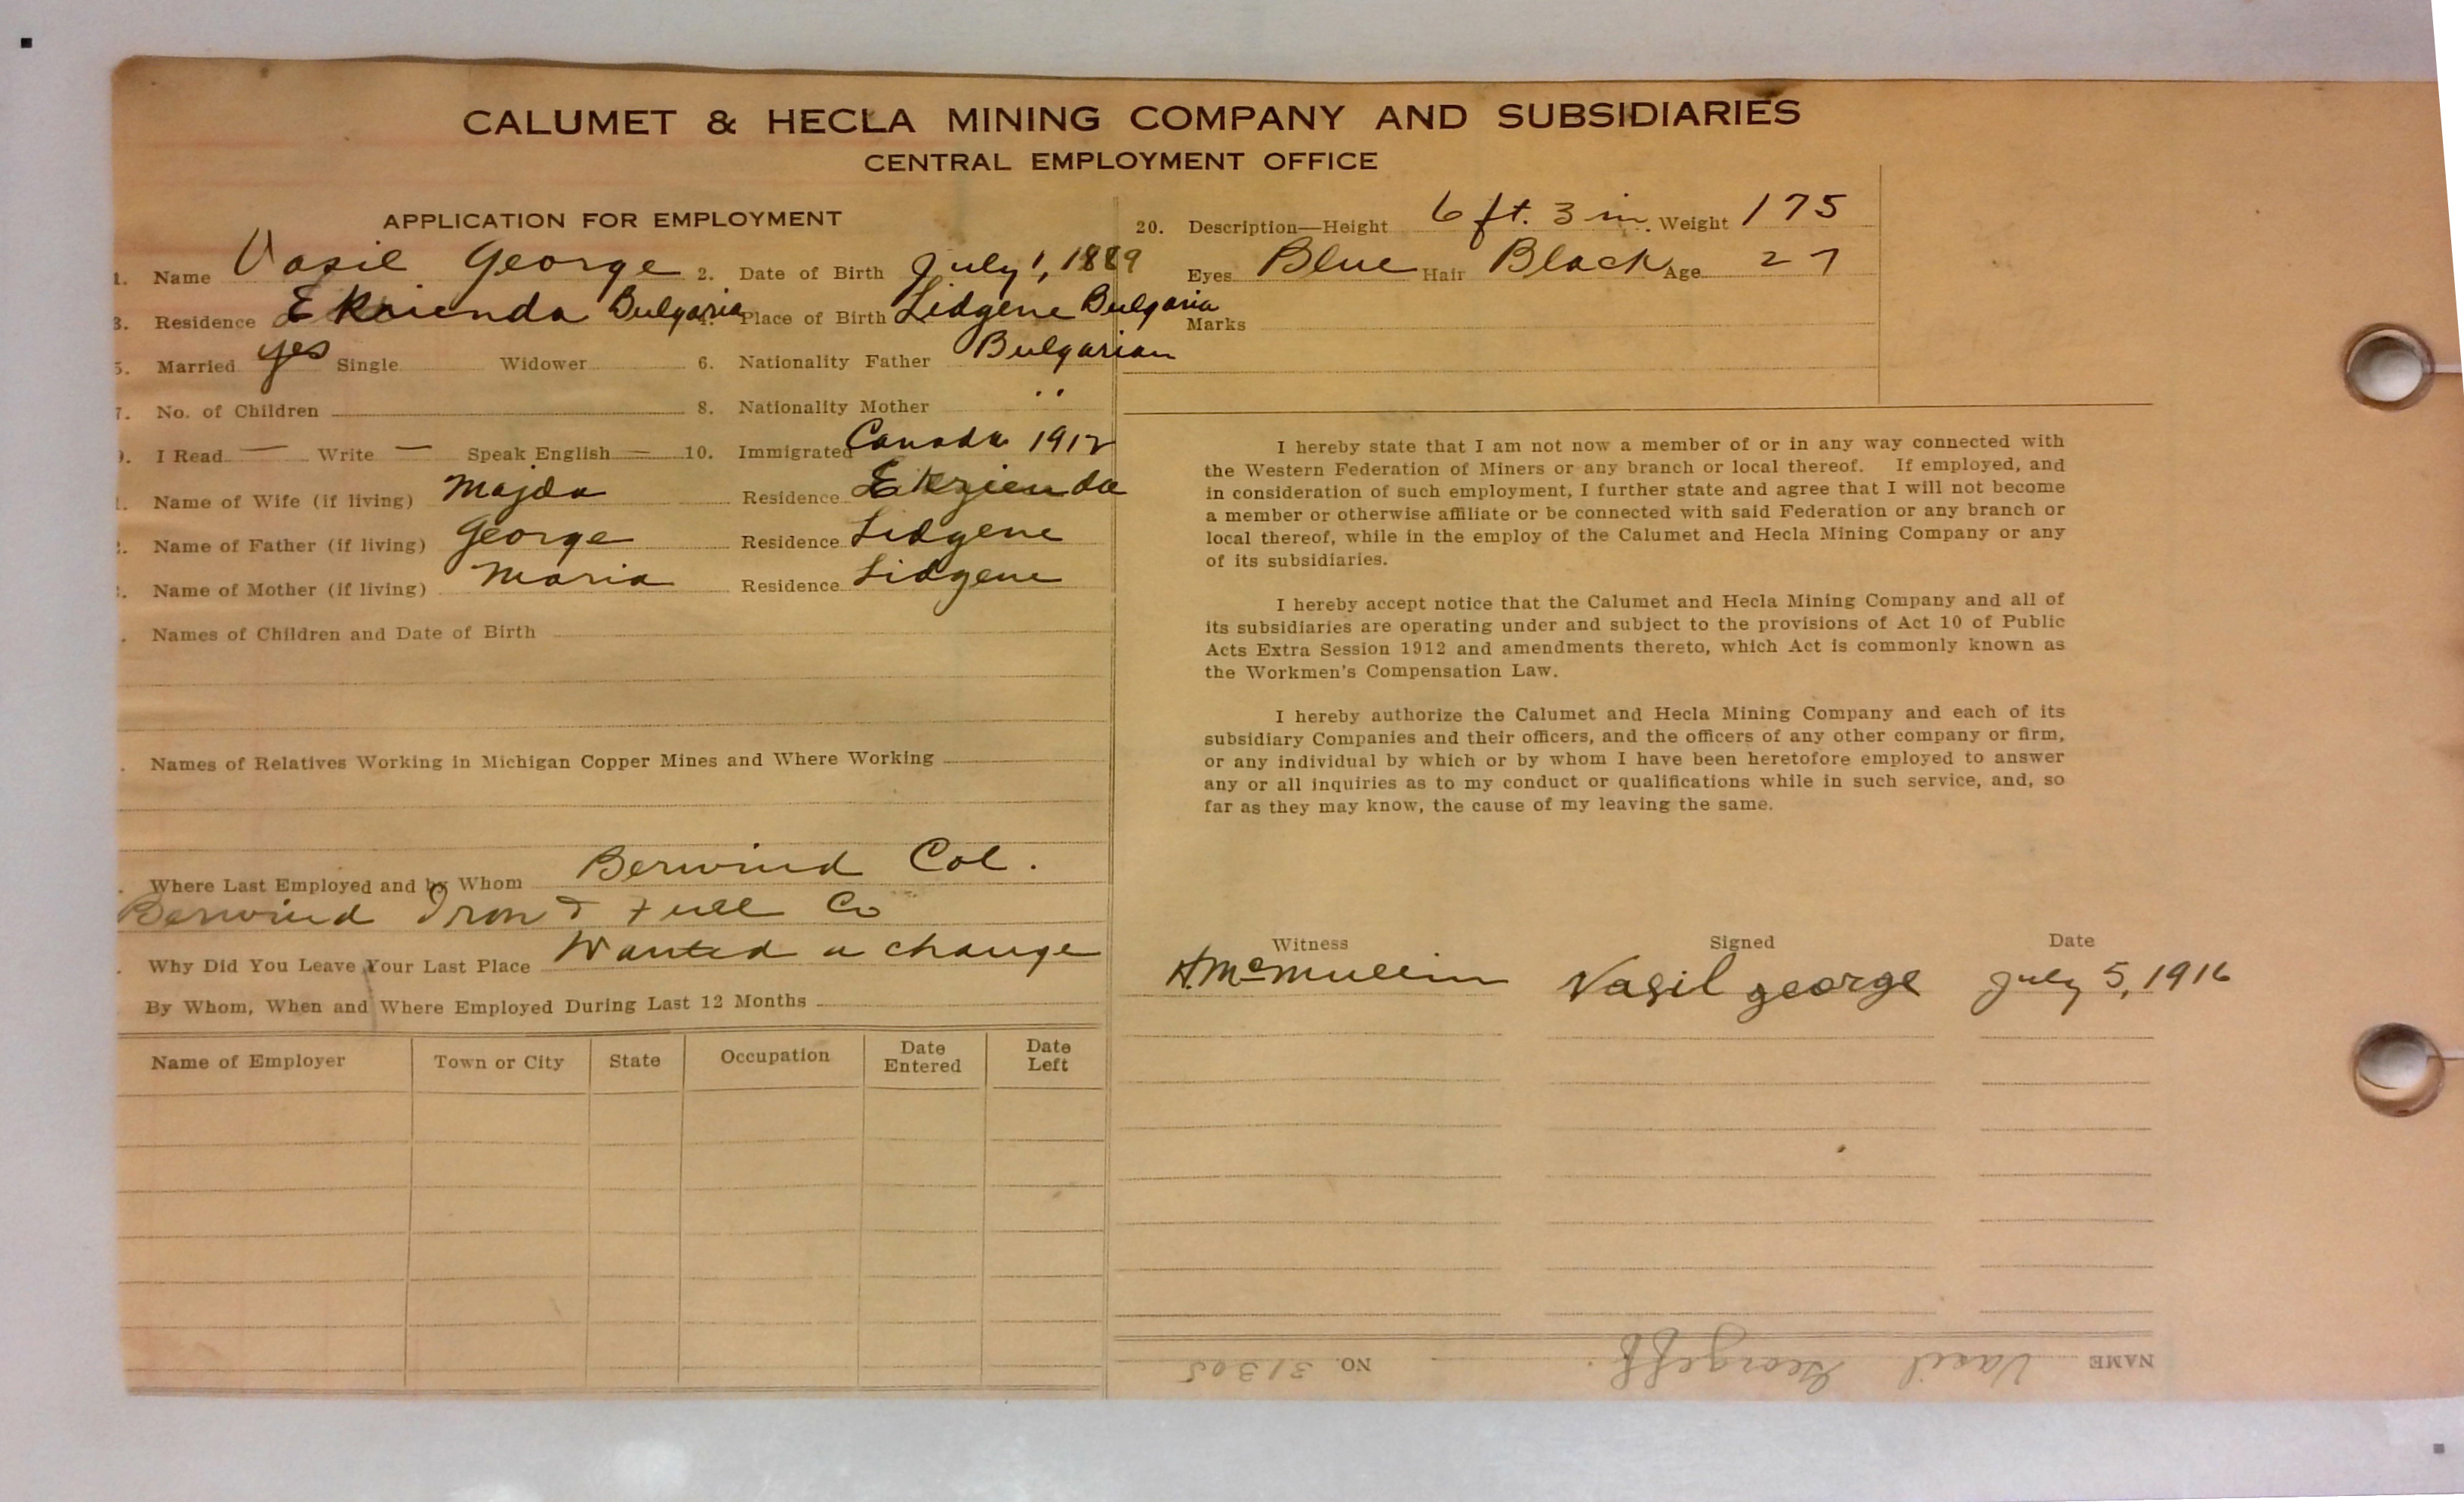 CALUMET & HECLA MINING COMPANY AND SUBSIDIARIES
CENTRAL EMPLOYMENT OFFICE
APPLICATION FOR EMPLOYMENT
1. Name Vasil George 2. Date of Birth July 1, 1889
3. Residence Bulgaria 4. Place of Birth Lidgene Bulgaria
5. Married yes Single Widower 6. Nationality Father Bulgarian
7. No. of Children 8. Nationality Mother "
9. I Read — Write — Speak English — 10. Immigrated Canada 1912
Name of Wife (if living) Majda Residence Ekzienda
Name of Father (if living) George Residence Lidgene
Name of Mother (if living) Maria Residence Lidgene
Names of Children and Date of Birth
Names of Relatives Working in Michigan Copper Mines and Where Working
Where Last Employed and by Whom Berwind Col.
Berwind Iron & Fuel Co
Why Did You Leave Your Last Place Wanted a change
By Whom, When and Where Employed During Last 12 Months
Name of Employer Town or City State Occupation Date Entered Date Left
20. Description—Height 6 ft. 3 in. Weight 175
Eyes Blue Hair Black Age 27
Marks
I hereby state that I am not now a member of or in any way connected with
the Western Federation of Miners or any branch or local thereof. If employed, and
in consideration of such employment, I further state and agree that I will not become
a member or otherwise affiliate or be connected with said Federation or any branch or
local thereof, while in the employ of the Calumet and Hecla Mining Company or any
of its subsidiaries.
I hereby accept notice that the Calumet and Hecla Mining Company and all of
its subsidiaries are operating under and subject to the provisions of Act 10 of Public
Acts Extra Session 1912 and amendments thereto, which Act is commonly known as
the Workmen's Compensation Law.
I hereby authorize the Calumet and Hecla Mining Company and each of its
subsidiary Companies and their officers, and the officers of any other company or firm,
or any individual by which or by whom I have been heretofore employed to answer
any or all inquiries as to my conduct or qualifications while in such service, and, so
far as they may know, the cause of my leaving the same.
Witness Signed Date
H. McMullin Vasil george July 5, 1916
NAME Vasil Georgeff. NO. 31305